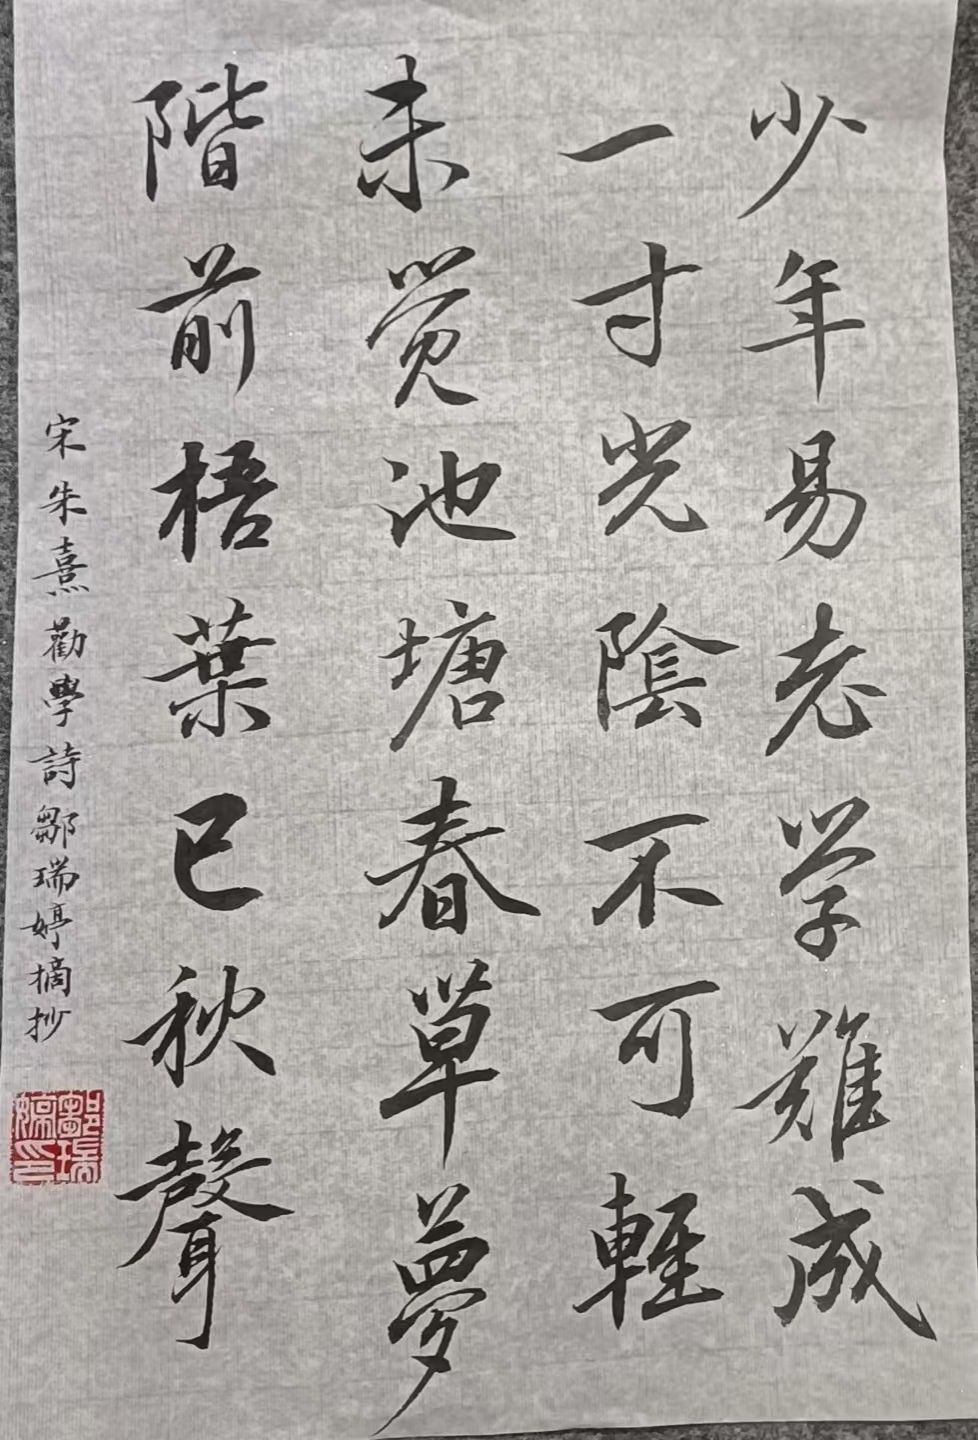 少年易老学難成
一寸光陰不可輕
未覺池塘春草夢
階前梧葉已秋聲
宋朱熹勸學詩鄒瑞婷摘抄
鄒瑞婷印